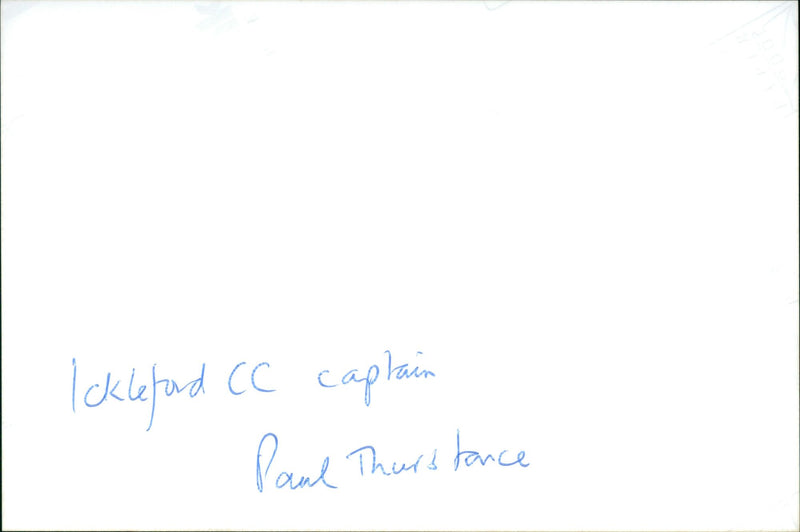 Ickleford CC captain
Paul Thurstance